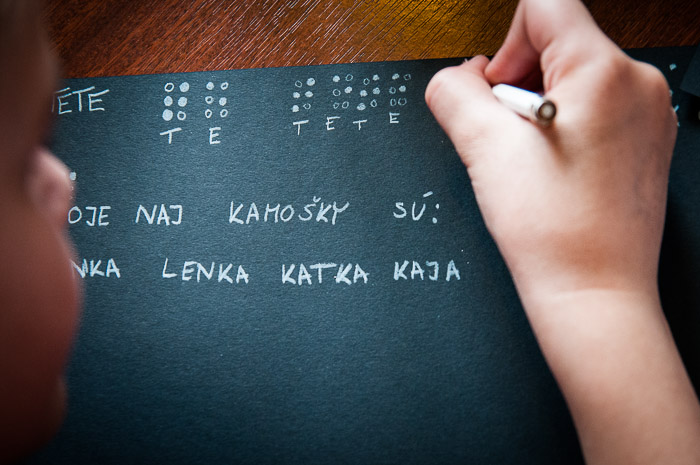 TETE T E T E T E
OJE NAJ KAMOŠKY SÚ:
NKA LENKA KATKA KAJA